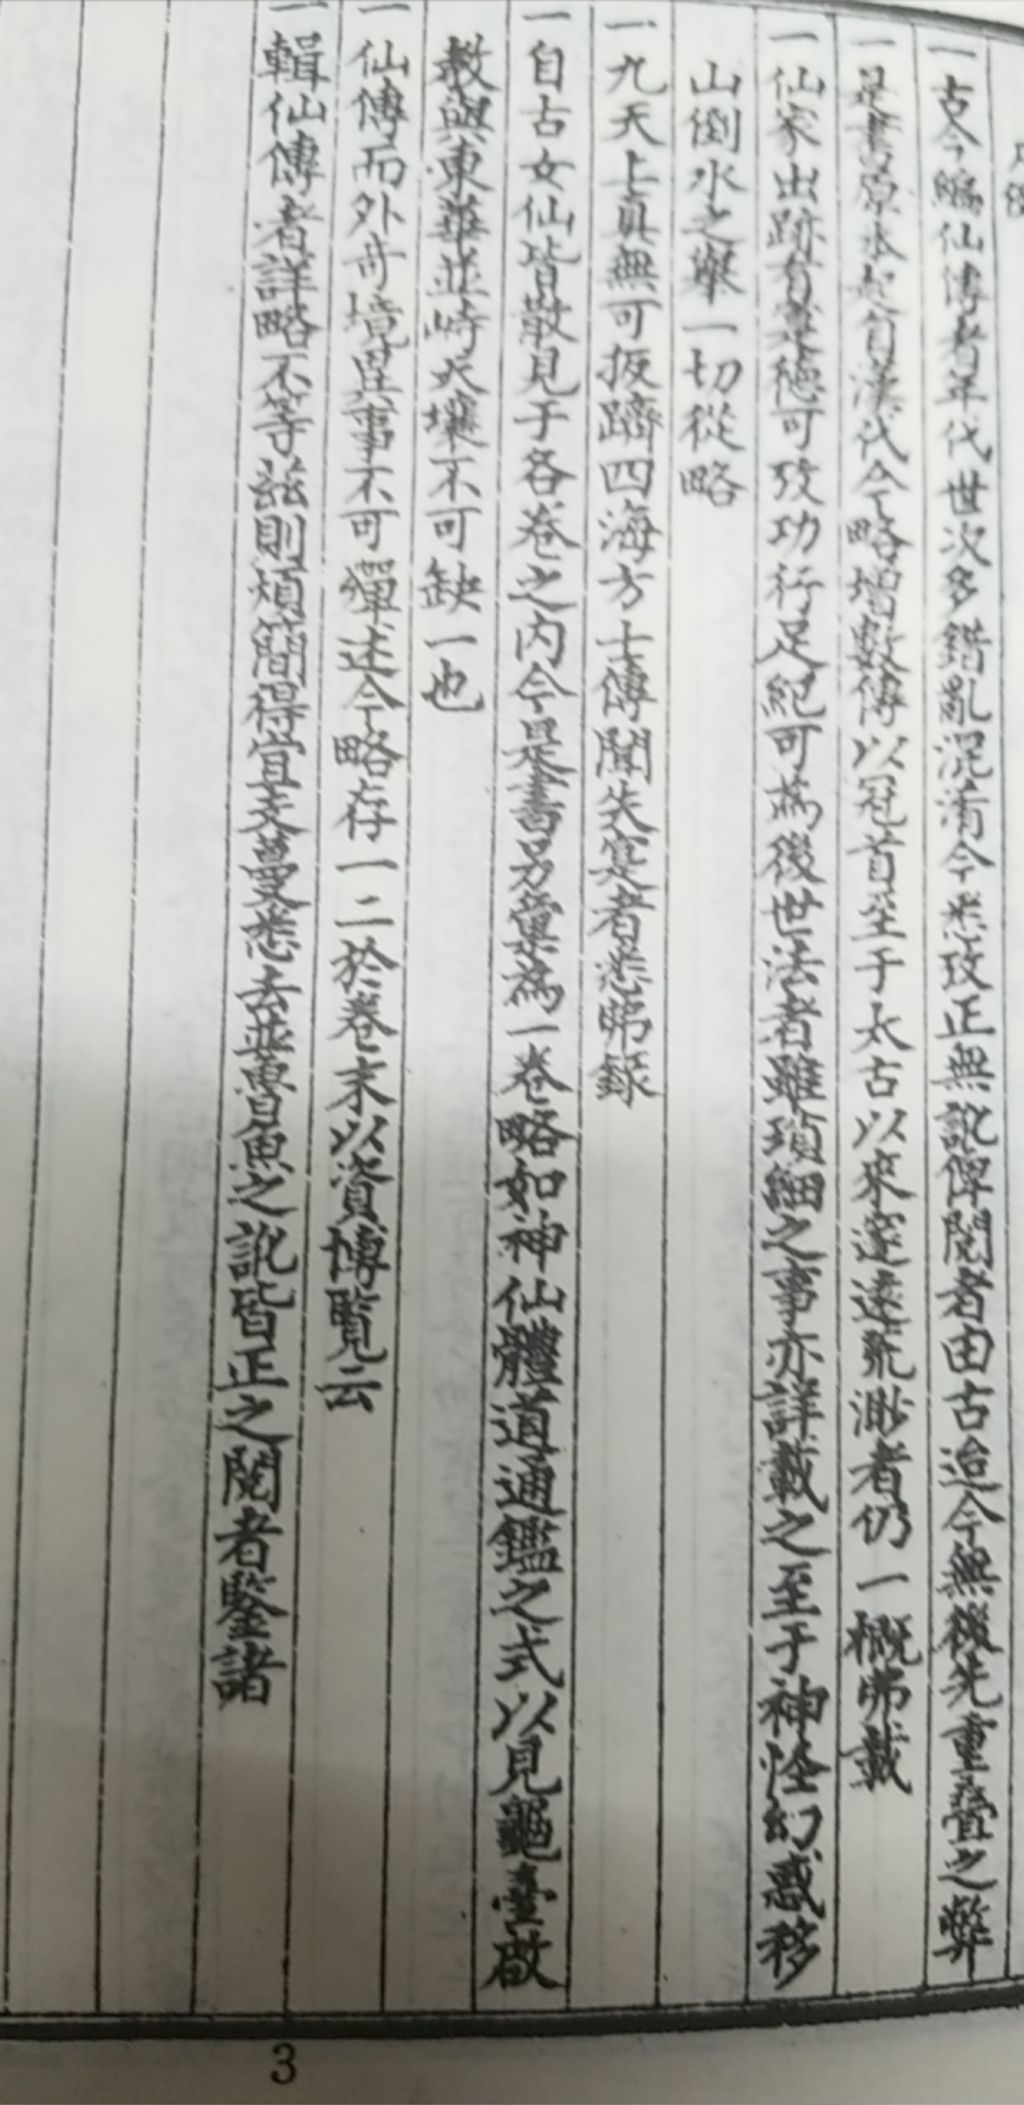 凡例
一古今編仙傳者年代世次多錯亂混淆今悉攷正無訛俾閱者由古迨今無後先重疊之弊
一是書原本起自漢代今略增數傳以冠首至于太古以來邃遠飄渺者仍一概弗載
一仙家出跡有寔德可攷功行足紀可為後世法者雖瑣細之事亦詳載之至于神怪幻惑移
山倒水之舉一切從略
一九天上真無可扳躋四海方士傳聞失寔者悉弗錄
一自古女仙皆散見于各卷之内今是書另彙為一卷略如神仙體道通鑑之式以見龜臺啟
教與東華並峙天壤不可缺一也
一仙傳而外奇境異事不可殫述今略存一二於卷末以資博覽云
一輯仙傳者詳略不等茲則煩簡得宜支蔓悉去並魯魚之訛皆正之閱者鑒諸
3